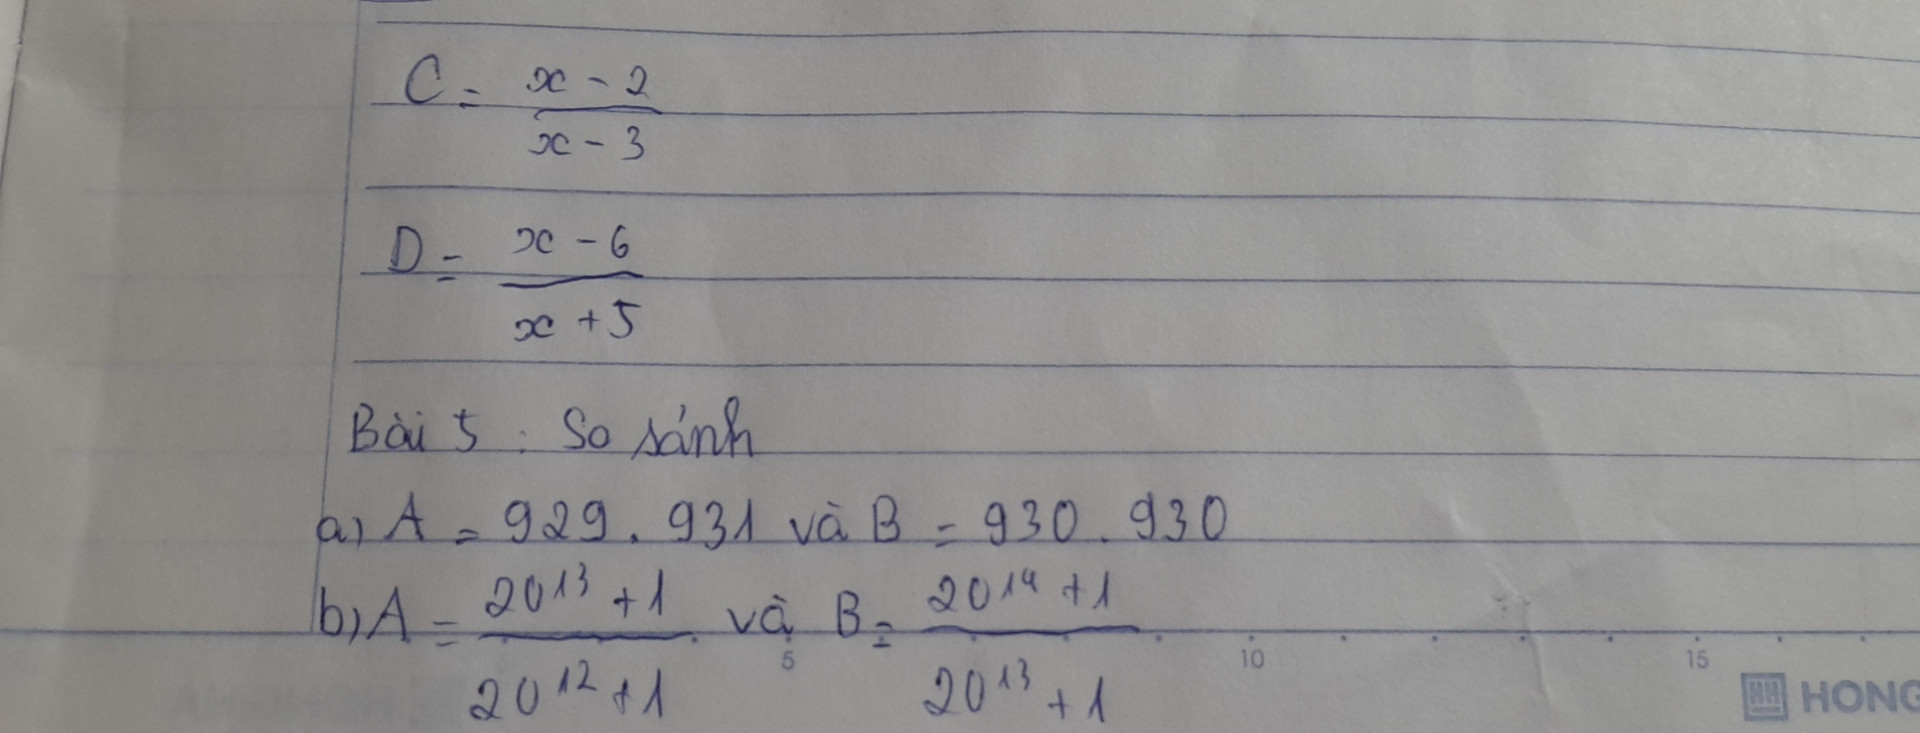 C = x - 2 / x - 3
D = x - 6 / x + 5
Bài 5 : So sánh
a) A = 929 . 931 và B = 930 . 930
b) A = 20¹³ + 1 / 20¹² + 1 và B = 20¹⁴ + 1 / 20¹³ + 1
5 10 15
HONG